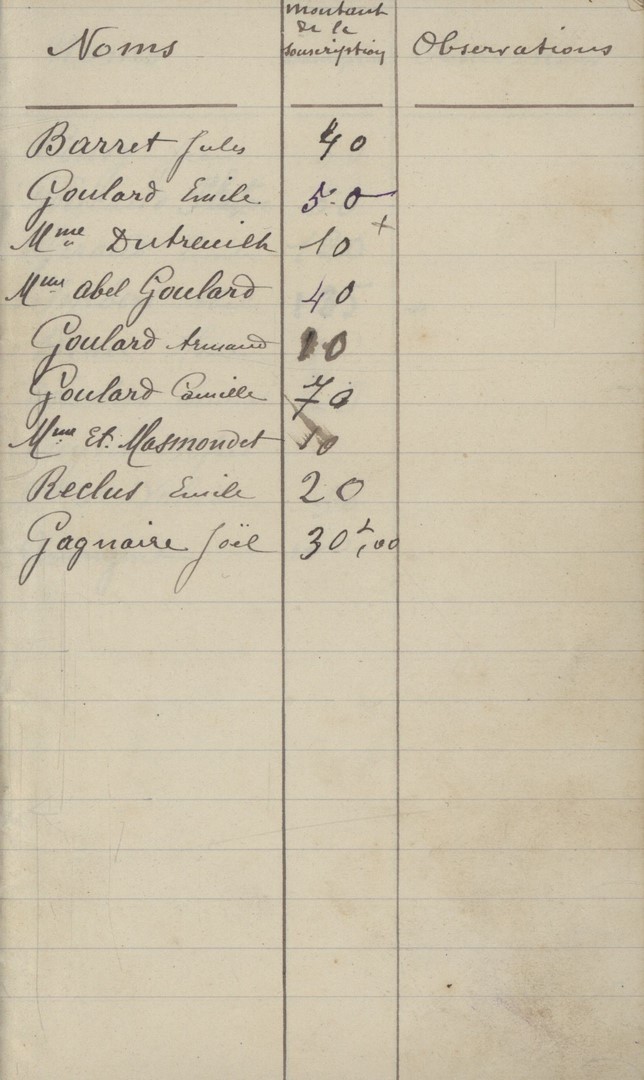 Noms montant de la souscription Observations
Barret Jules 40
Goulard Emile 50
Mme Dutreuilh 10 +
Mme abel Goulard 40
Goulard Armand 10
Goulard Camille 70
Mme Et. Masmondet 10
Reclus Emile 20
Gagnaire Joël 30f,00